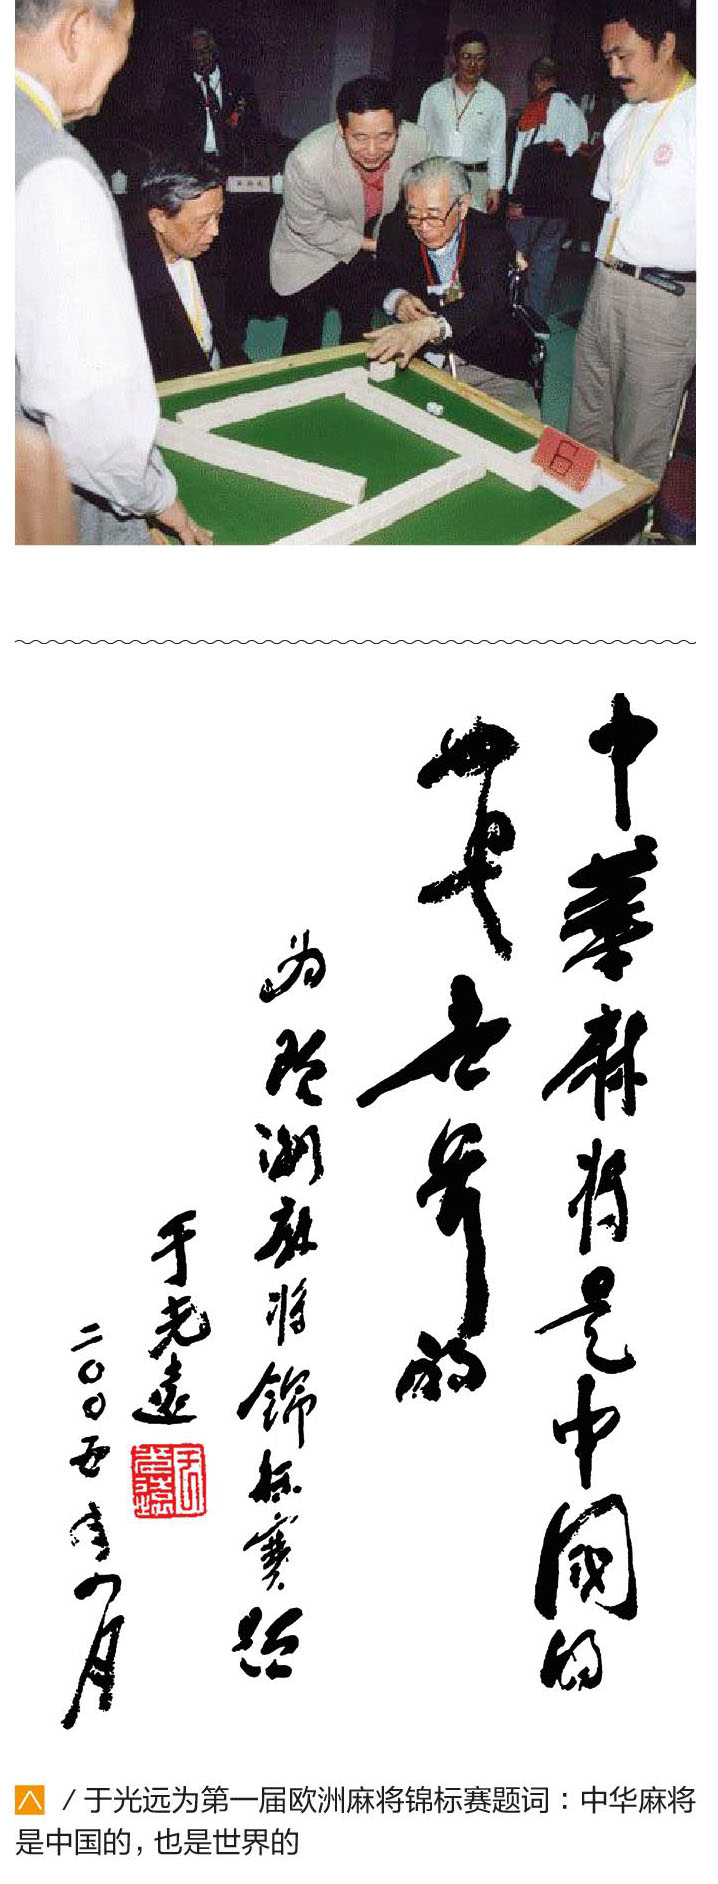 6
中華麻将是中國的
也是世界的
为欧洲麻将锦标赛题
于光遠
二〇〇五年月
/ 于光远为第一届欧洲麻将锦标赛题词：中华麻将
是中国的，也是世界的